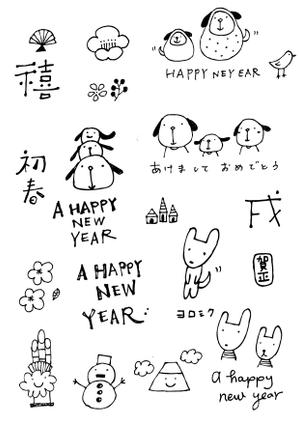 禧
HAPPY NEYEAR
初春
あけまして おめでとう
A HAPPY
NEW
YEAR
戌
A HAPPY
NEW
YEAR.
賀正
ヨロシク
a happy
new year